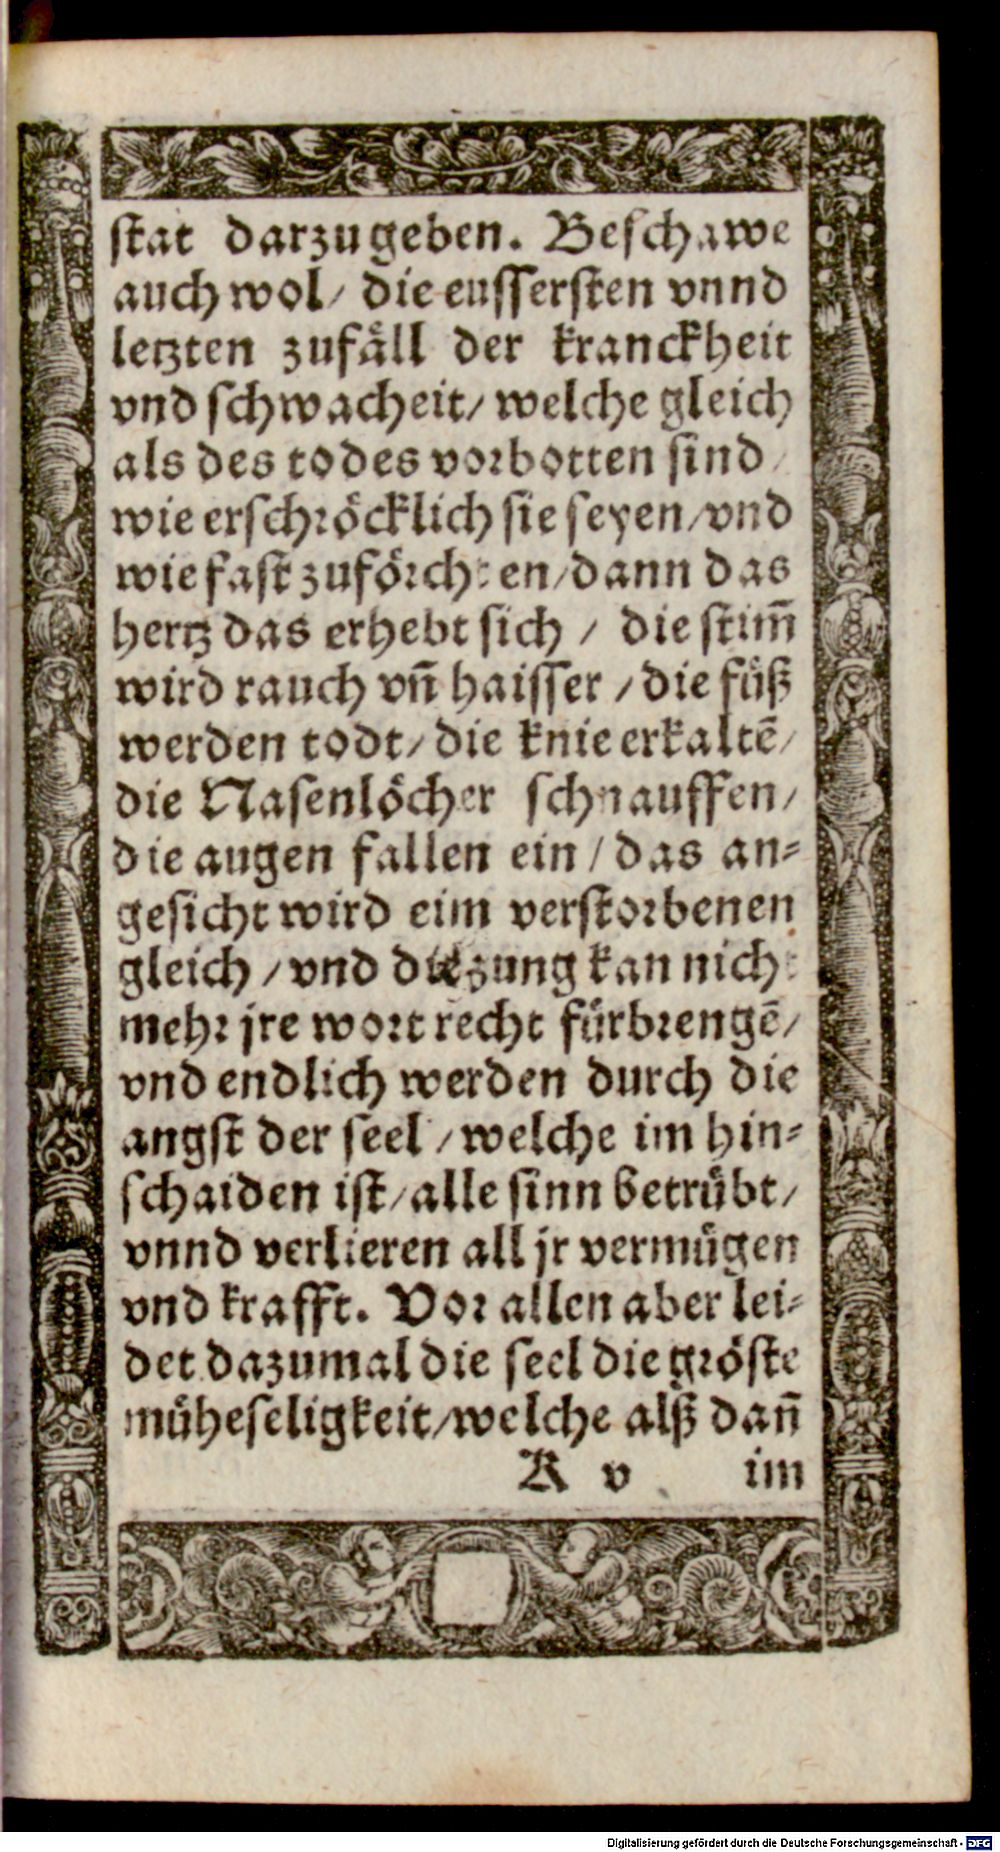 stat darzugeben. Beschawe
auch wol/ die eussersten vnnd
letzten zufäll der kranckheit
vnd schwacheit/ welche gleich
als des todes vorbotten sind/
wie erschröcklich sie seyen/vnd
wie fast zuförchten/dann das
hertz das erhebt sich / die stim̃
wird rauch vñ haisser /die füß
werden todt/ die knie erkaltẽ/
die Nasenlöcher schnauffen/
die augen fallen ein / das an-
gesicht wird eim verstorbenen
gleich / vnd die zung kan nicht
mehr jre wort recht fürbrengẽ/
vnd endlich werden durch die
angst der seel /welche im hin-
schaiden ist/alle sinn betrübt/
vnnd verlieren all jr vermügen
vnd krafft. Vor allen aber lei-
det dazumal die seel die gröste
müheseligkeit/welche alß dañ
K v im
Digitalisierung gefördert durch die Deutsche Forschungsgemeinschaft - DFG